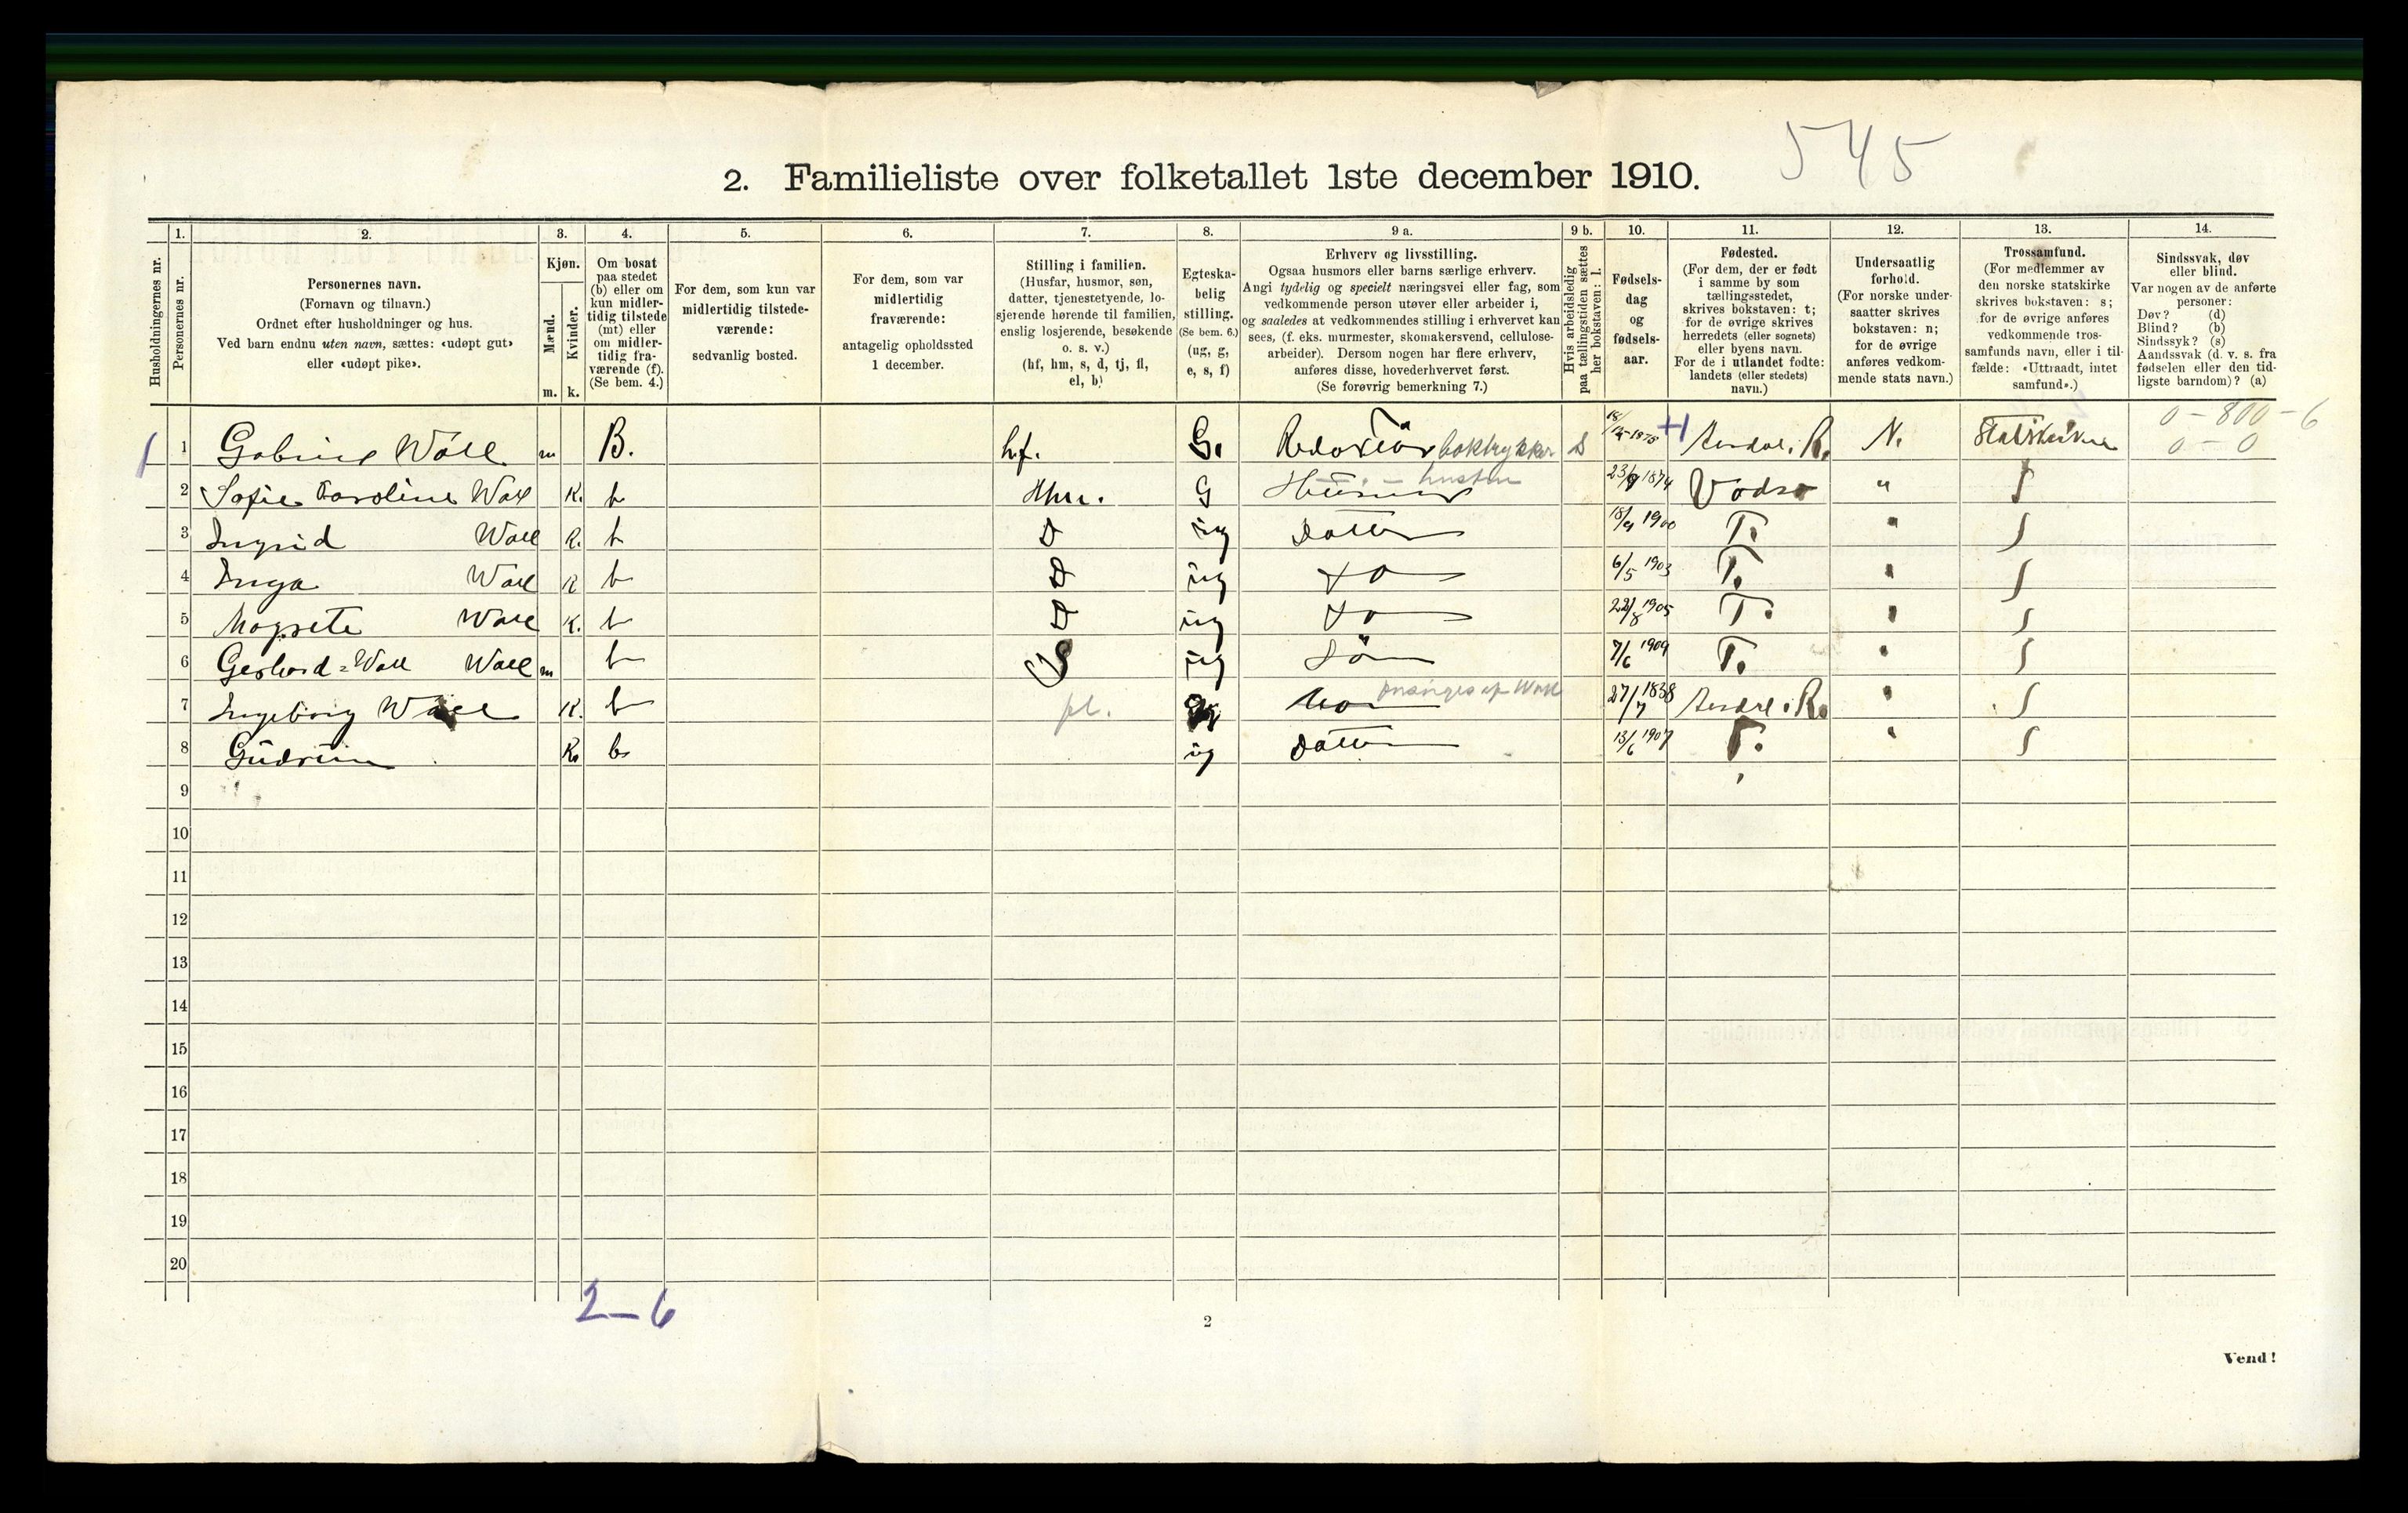 545
2. Familieliste over folketallet 1ste december 1910.
Husholdningernes nr.
1. Personernes nr.
2. Personernes navn.
(Fornavn og tilnavn.)
Ordnet efter husholdninger og hus.
Ved barn endnu uten navn, sættes: «udøpt gut»
eller «udøpt pike».
3. Kjøn.
Mænd. m.
Kvinder. k.
4. Om bosat
paa stedet
(b) eller om
kun midler-
tidig tilstede
(mt) eller
om midler-
tidig fra-
værende (f).
(Se bem. 4.)
5. For dem, som kun var
midlertidig tilstede-
værende:
sedvanlig bosted.
6. For dem, som var
midlertidig
fraværende:
antagelig opholdssted
1 december.
7. Stilling i familien.
(Husfar, husmor, søn,
datter, tjenestetyende, lo-
sjerende hørende til familien,
enslig losjerende, besøkende
o. s. v.)
(hf, hm, s, d, tj, fl,
el, b)
8. Egteska-
belig
stilling.
(Se bem. 6.)
(ug, g,
e, s, f)
9 a. Erhverv og livsstilling.
Ogsaa husmors eller barns særlige erhverv.
Angi tydelig og specielt næringsvei eller fag, som
vedkommende person utøver eller arbeider i,
og saaledes at vedkommendes stilling i erhvervet kan
sees, (f. eks. murmester, skomakersvend, cellulose-
arbeider). Dersom nogen har flere erhverv,
anføres disse, hovederhvervet først.
(Se forøvrig bemerkning 7.)
9 b. Hvis arbeidsledig
paa tællingstiden sættes
her bokstaven: l.
10. Fødsels-
dag
og
fødsels-
aar.
11. Fødested.
(For dem, der er født
i samme by som
tællingsstedet,
skrives bokstaven: t;
for de øvrige skrives
herredets (eller sognets)
eller byens navn.
For de i utlandet fødte:
landets (eller stedets)
navn.)
12. Undersaatlig
forhold.
(For norske under-
saatter skrives
bokstaven: n;
for de øvrige
anføres vedkom-
mende stats navn.)
13. Trossamfund.
(For medlemmer av
den norske statskirke
skrives bokstaven: s;
for de øvrige anføres
vedkommende tros-
samfunds navn, eller i til-
fælde: «Uttraadt, intet
samfund».)
14. Sindssvak, døv
eller blind.
Var nogen av de anførte
personer:
Døv? (d)
Blind? (b)
Sindssyk? (s)
Aandssvak (d. v. s. fra
fødselen eller den tid-
ligste barndom)? (a)
0 - 800 - 6
1 1 m B. hf. G. boktrykker 1875 N. Statskirken 0 - 0
2 Sofie Caroline Wall K. b G hustru 1874 Vadsø " s
3 Ingrid Wall K. b D ug Datter 1900 T. " s
4 Inga Wall K b D ug Do 6/5 1903 T. " s
5 Magrete Wall K. b D ug Do 22/8 1905 T. " s
6 Gerhard Wall Wall m b S ug Søn 7/6 1909 T. " s
7 Ingeborg Wall K. b fl. Mor 27/7 1838 " s
8 Gudrun K. b ug Datter 13/6 1907 T. " s
9
10
11
12
13
14
15
16
17
18
19
20
2-6
2
Vend!